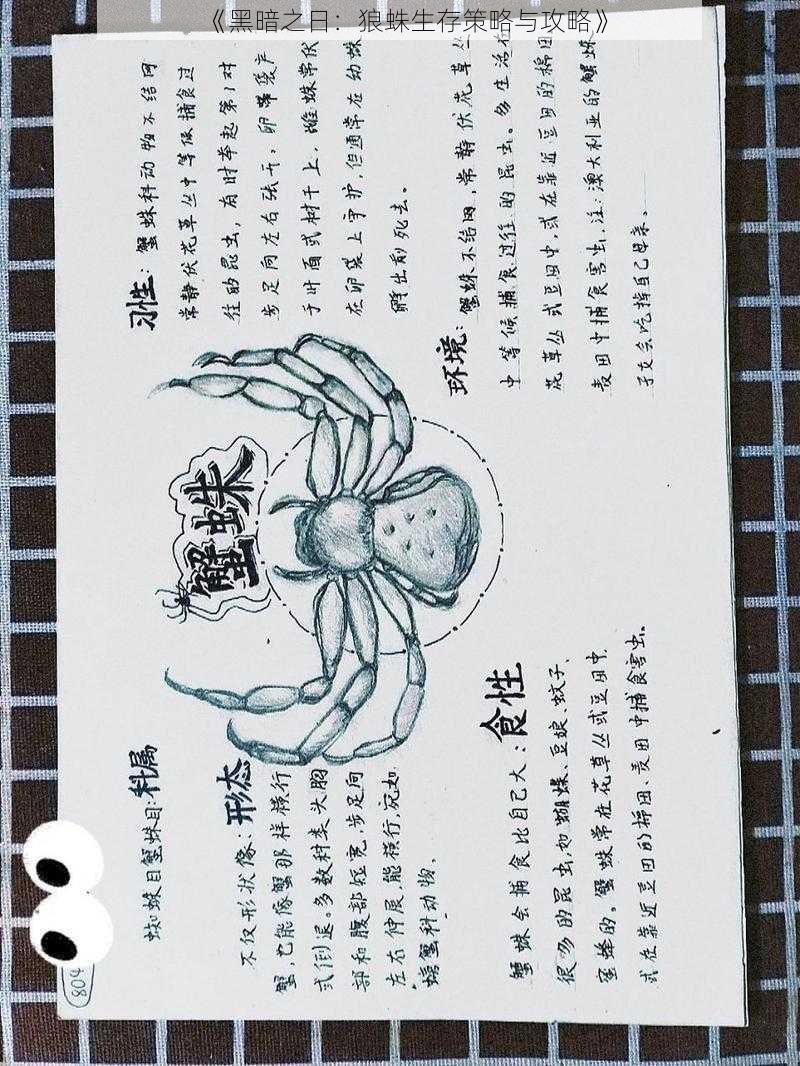 《黑暗之日：狼蛛生存策略与攻略》
804
蜘蛛目蟹蛛目:科属
形态:
不仅形状像
蟹,也能像蟹那样横行
或倒退。多数种类头胸
部和腹部短宽,步足向
左右伸展,能横行,宛如
螃蟹科动物。
蟹蛛
习性:蟹蛛科动物不结网
常静伏花草丛中等候捕食过
往的昆虫,有时举起第1对
步足向左右张开,卵袋产
于叶面或树干上,雌蛛常伏
在卵袋上守护,但通常在幼蛛
孵出前死去。
食性:
蟹蛛会捕食比自己大
很多的昆虫,如蝴蝶、豆娘、蚊子、
蜜蜂的。蟹蛛常在花草丛或豆田中,
或在靠近豆田的棉田、麦田中捕食害虫。
环境:蟹蛛不结网,常静伏花草丛
中等候捕食过往的昆虫。多生活在
花草丛或豆田中,或在靠近豆田的棉田
麦田中捕食害虫,注:澳大利亚的蟹蛛
子女会吃掉自己母亲。